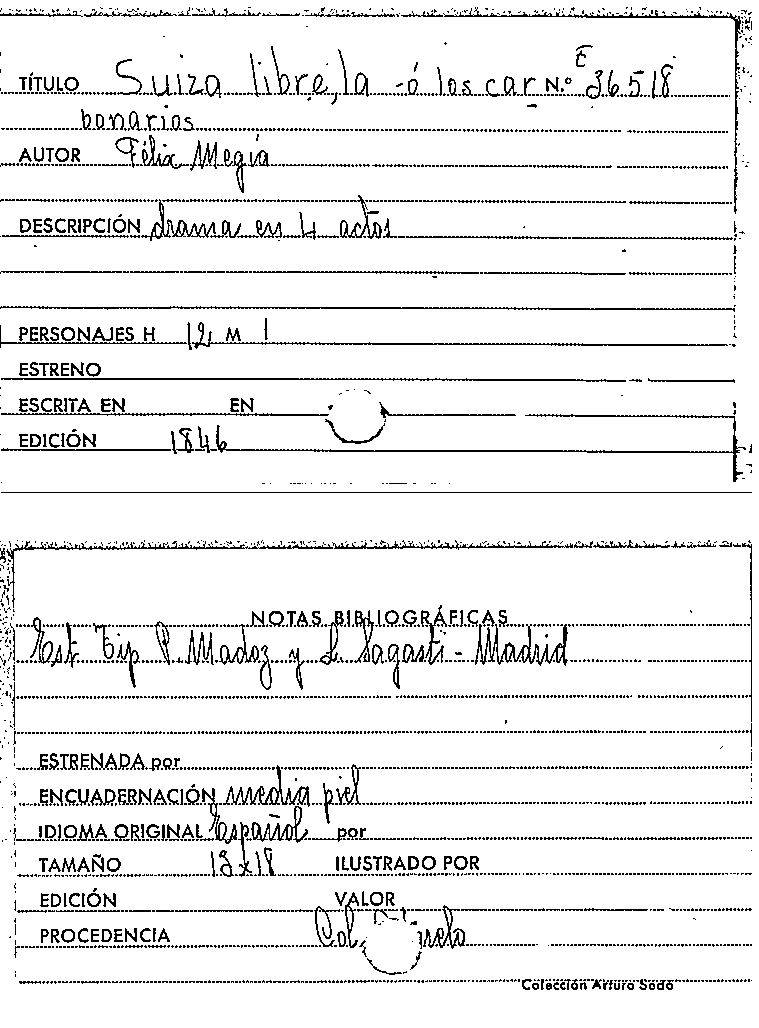 TÍTULO Suiza libre, la -ó los car N.º E 36518
bonarios
AUTOR Félix Megía
DESCRIPCIÓN drama en 4 actos
PERSONAJES H 12 M 1
ESTRENO
ESCRITA EN EN
EDICIÓN 1846
NOTAS BIBLIOGRÁFICAS
Est Tip P. Madoz y L. Sagasti - Madrid
ESTRENADA por
ENCUADERNACIÓN media piel
IDIOMA ORIGINAL Español por
TAMAÑO 13x18 ILUSTRADO POR
EDICIÓN VALOR
PROCEDENCIA Col.
Colección Arturo Sedó